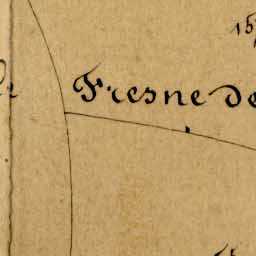 Fresne de